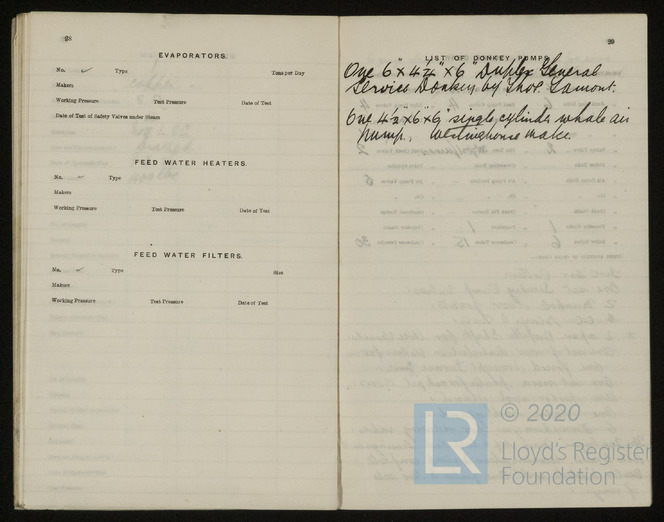 28
EVAPORATORS.
No. ✓ Type Tons per Day
Makers
Working Pressure Test Pressure Date of Test
Date of Test of Safety Valves under Steam
FEED WATER HEATERS.
No. ✓ Type
Makers
Working Pressure Test Pressure Date of Test
FEED WATER FILTERS.
No. ✓ Type Size
Makers
Working Pressure Test Pressure Date of Test
29
LIST OF DONKEY PUMPS
One 6" x 4¼" x 6" Duplex General
Service Donkey by Thos. Lamont.
One 4½ x 6 x 6" single cylinder whale air
pump, Westinghouse make.
LR
© 2020
Lloyd's Register
Foundation